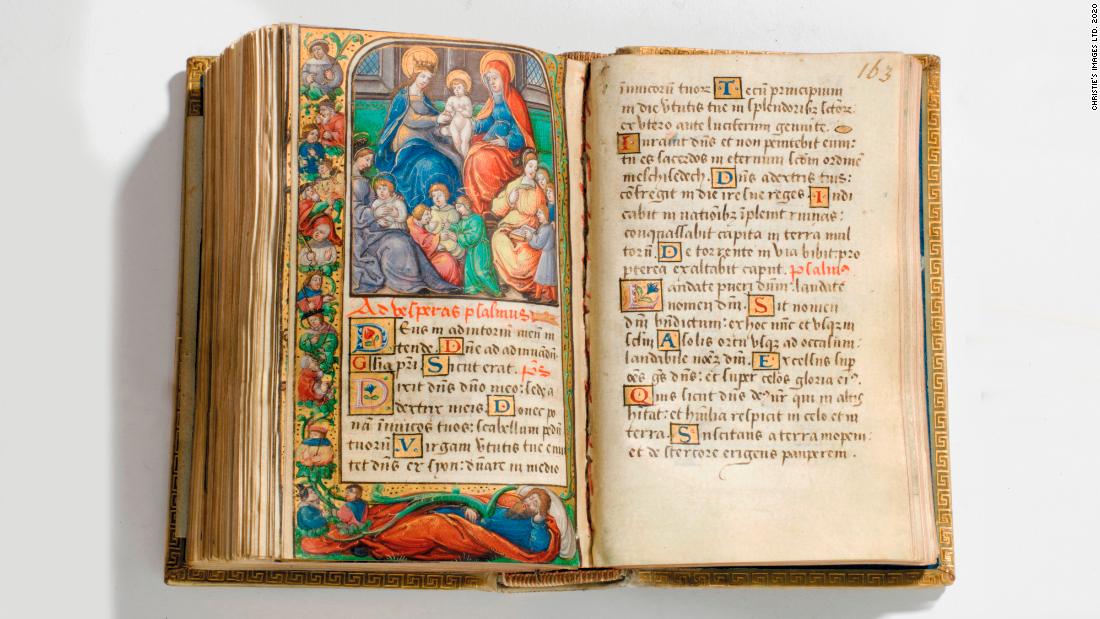 Ad vesperas psalmus
Deus in adiutoriū meū in
tende. Dñe ad adiuuādū
Glīa pr̄i. Sicut erat. p̄s
Dixit dñs dño meo: sede a
dextris meis. Donec po
nā inimicos tuos: scabellum pedū
tuorū Virgam v̄tutis tue emi
tet dñs ex syon: dñare in medio
163
īnimicorū tuorꝝ Tecū principium
in die v̄tutis tue in splendoribꝫ sctōꝝ
ex vtero ante luciferum genui te.
Iurauit dñs et non penitebit eum:
tu es sacerdos in eternum scdm̄ ordinē
melchisedech. Dñs a dextris tuis:
cōfregit in die ire sue reges Iudi
cabit in nationibꝫ īplebit ruinas:
conquassabit capita in terra mul
torū. De torrente in via bibit: pro
pterea exaltabit caput. psalmus
Laudate pueri dñm: laudate
nomen dñi. Sit nomen
dñi bn̄dictum: ex hoc nūc et vsqꝫ in
sclm̄ A solis ortu vsqꝫ ad occasum:
laudabile nomē dñi. Excelsus sup̄
oēs gētes dñs: et super celos gloria ei⁹.
Quis sicut dñs de⁹ nr̄ qui in altis
hītat: et hūilia respicit in celo et in
terra. Suscitans a terra inopem:
et de stercore erigens pauperem.
CHRISTIE'S IMAGES LTD. 2020